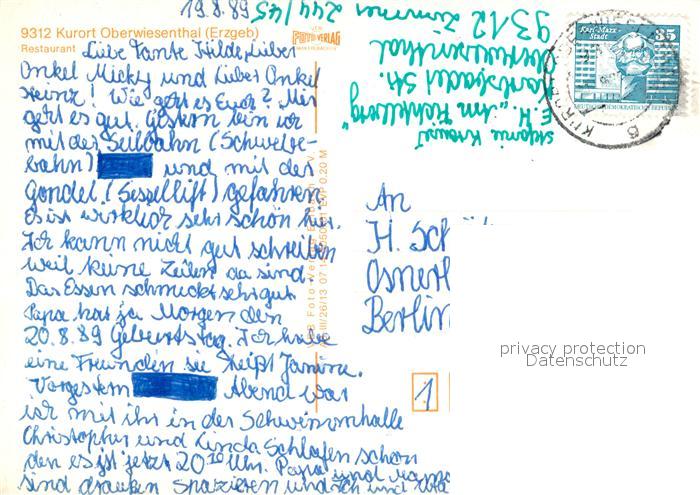 19.8.89
9312 Kurort Oberwiesenthal (Erzgeb)
Restaurant
Liebe Tante Hilde, Lieber
Onkel Micky und Lieber Onkel
Heinz! Wie geht es Euch? Mir
geht es gut. Gestern bin ich
mit der Seilbahn (Schwebe-
bahn) und mit der
Gondel (Sessellift) gefahren.
Es ist wirklich sehr schön hier.
Ich kann nicht gut schreiben
weil keine Zeilen da sind.
Das Essen schmeckt sehr gut
Papa hat ja Morgen den
20.8.89 Geburtstag. Ich habe
eine Freundin sie heißt Janine.
Vorgestern Abend war
ich mit ihr in der Schwimmhalle
Christopher und Linda Schlafen schon
den es ist jetzt 20 10 Uhr. Papa und
sind draußen Spazieren und ich
VEB
FOTO VERLAG
Stefanie
E.H. "Am Fichtelberg"
Karlsbader Str.
Oberwiesenthal
9312 Zimmer 244/45
Karl-Marx-
Stadt
35
An
H. Sch
Berlin
1
privacy protection
Datenschutz